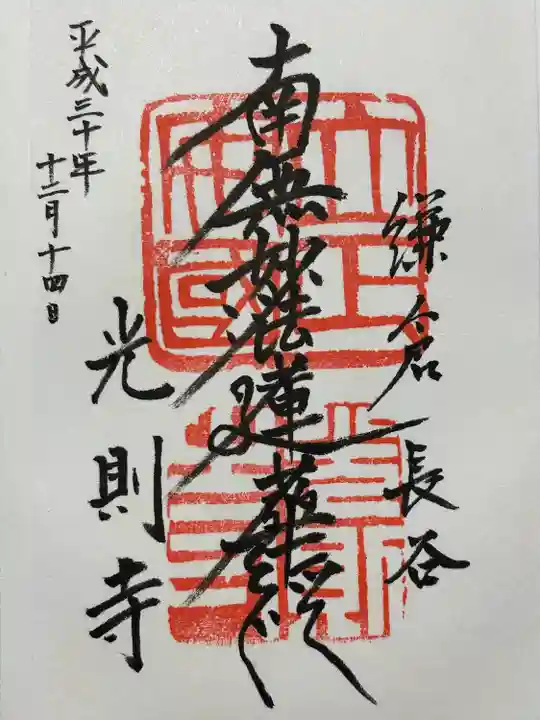 鎌倉長谷
南無妙法蓮華経
光則寺
平成三十年
十二月十四日
立正安國